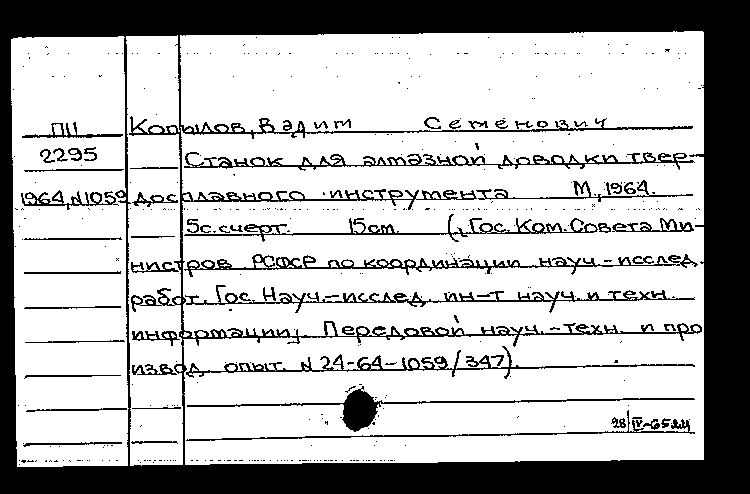 ПII Копылов, Вадим Семенович
2295 Станок для алмазной доводки твер-
1964, N1059 досплавного инструмента М., 1964.
5с. счерт. 15см. (, Гос. Ком. Совета Ми-
нистров РСФСР по координации науч.-исслед.
работ. Гос. Науч.-исслед. ин-т науч. и техн.
информации; Передовой науч.-техн. и про
извод. опыт. N 24-64-1059/347).
28/IV-65